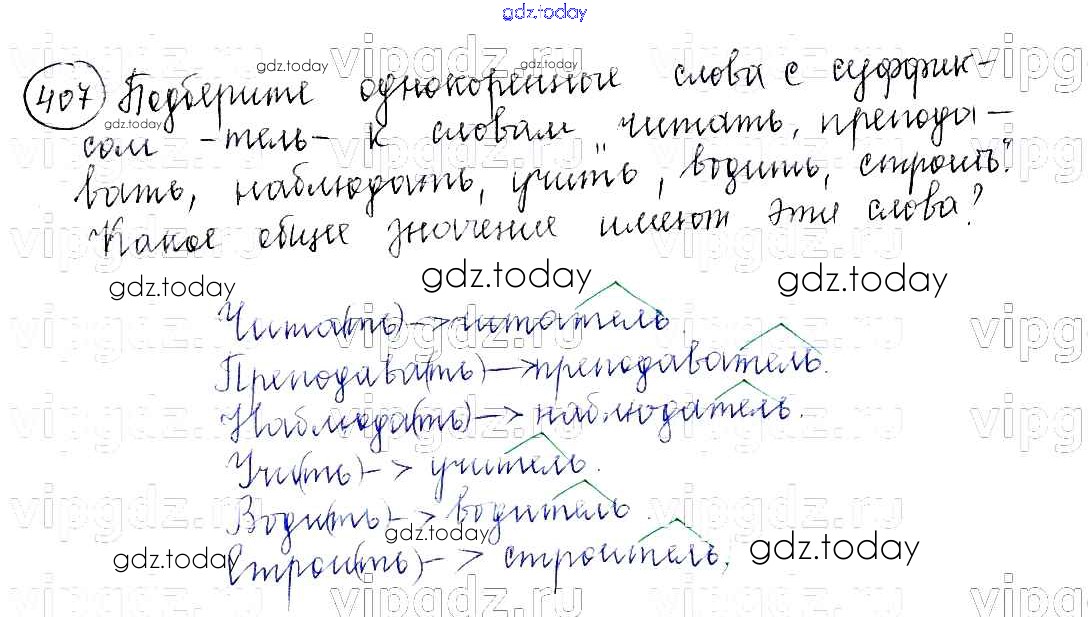 gdz.today
407 Подберите однокоренные слова с суффик-
сом -тель- к словам "читать, препода-
вать, наблюдать, учить, водить, строить".
Какое общее значение имеют эти слова?
gdz.today gdz.today gdz.today
Чита(ть) -> читатель.
Преподава(ть) -> преподаватель.
Наблюда(ть) -> наблюдатель.
Учи(ть) -> учитель.
Води(ть) -> водитель
Строи(ть) -> строитель,
gdz.today gdz.today gdz.today